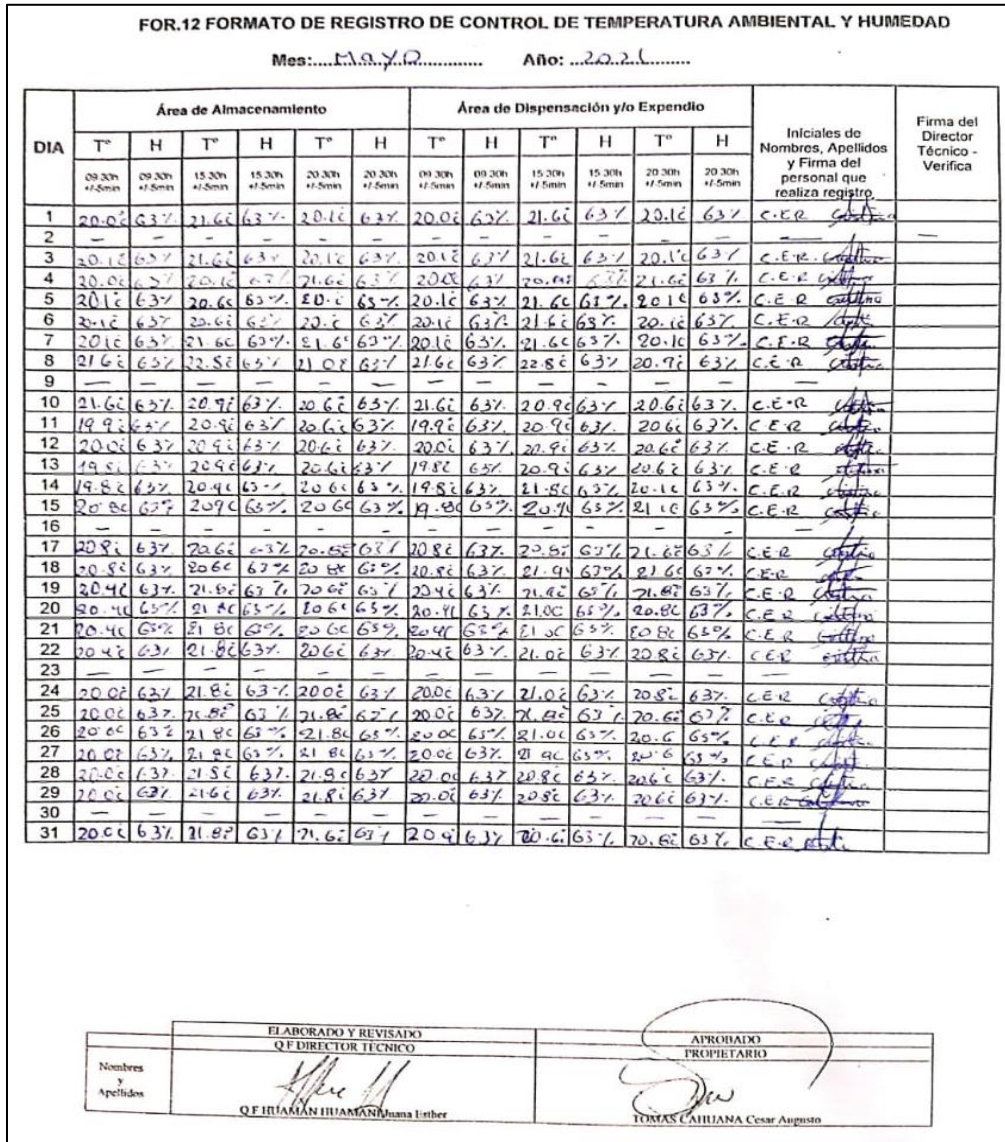 FOR.12 FORMATO DE REGISTRO DE CONTROL DE TEMPERATURA AMBIENTAL Y HUMEDAD
Mes:....Mayo............. Año: ...2021.........
DIA Área de Almacenamiento Área de Dispensación y/o Expendio Iniciales de Nombres, Apellidos y Firma del personal que realiza registro Firma del Director Técnico - Verifica
T° H T° H T° H T° H T° H T° H
09.30h +/-5min 09.30h +/-5min 15.30h +/-5min 15.30h +/-5min 20.30h +/-5min 20.30h +/-5min 09.30h +/-5min 09.30h +/-5min 15.30h +/-5min 15.30h +/-5min 20.30h +/-5min 20.30h +/-5min
1 20.0c 63% 21.6c 63% 20.1c 63% 20.0c 63% 21.6c 63% 20.1c 63% C.E.R
2 — — — — — — — — — — — — — —
3 20.1c 63% 21.6c 63% 20.1c 63% 20.1c 63% 21.6c 63% 20.1c 63% C.E.R.
4 20.0c 63% 20.1c 63% 21.6c 63% 20.0c 63% 63% 21.6c 63% C.E.R
5 20.1c 63% 20.6c 63% 63% 20.1c 63% 21.6c 63% 20.1c 63% C.E.R
6 20.1c 63% 20.6c 63% 63% 20.1c 63% 21.6c 63% 20.1c 63% C.E.R
7 20.1c 63% 21.6c 63% 21.6c 63% 20.1c 63% 21.6c 63% 20.1c 63% C.E.R
8 21.6c 63% 22.8c 63% 21.0c 63% 21.6c 63% 22.8c 63% 20.9c 63% C.E.R
9 — — — — — — — — — — — — —
10 21.6c 63% 20.9c 63% 20.6c 63% 21.6c 63% 20.9c 63% 20.6c 63% C.E.R
11 19.9c 63% 20.9c 63% 20.6c 63% 19.9c 63% 20.9c 63% 20.6c 63% C.E.R
12 20.0c 63% 20.9c 63% 20.6c 63% 20.0c 63% 20.9c 63% 20.6c 63% C.E.R
13 19.8c 63% 20.9c 63% 20.6c 63% 19.8c 63% 20.9c 63% 20.6c 63% C.E.R
14 19.8c 63% 20.9c 63% 20.6c 63% 19.8c 63% 21.8c 63% 20.1c 63% C.E.R
15 20.8c 63% 20.9c 63% 20.6c 63% 19.8c 63% 20.9c 63% 21.1c 63% C.E.R
16 — — — — — — — — — — — — —
17 20.8c 63% 20.6c 63% 20.8c 63% 20.8c 63% 20.8c 63% 21.6c 63% C.E.R
18 20.8c 63% 20.6c 63% 20.8c 63% 20.8c 63% 21.9c 63% 21.6c 63% C.E.R
19 20.4c 63% 21.8c 63% 20.6c 63% 20.4c 63% 63% 21.8c 63% C.E.R
20 20.4c 63% 21.8c 63% 20.6c 63% 20.4c 63% 21.0c 63% 20.8c 63% C.E.R
21 20.4c 63% 21.8c 63% 20.6c 63% 20.4c 63% 21.0c 63% 20.8c 63% C.E.R
22 20.4c 63% 21.8c 63% 20.6c 63% 20.4c 63% 21.0c 63% 20.8c 63% C.E.R
23 — — — — — — — — — — — — —
24 20.0c 63% 21.8c 63% 20.0c 63% 20.0c 63% 21.0c 63% 20.8c 63% C.E.R
25 20.0c 63% 21.8c 63% 21.8c 63% 20.0c 63% 21.8c 63% 20.6c 63% C.E.R
26 20.0c 63% 21.8c 63% 21.8c 63% 20.0c 63% 21.0c 63% 20.6 63% C.E.R
27 20.0c 63% 21.8c 63% 21.8c 63% 20.0c 63% 21.9c 63% 20.6 63% C.E.R
28 20.0c 63% 21.8c 63% 21.8c 63% 20.0c 63% 20.8c 63% 20.6c 63% C.E.R
29 20.0c 63% 21.6c 63% 21.8c 63% 20.0c 63% 20.8c 63% 20.6c 63% C.E.R
30 — — — — — — — — — — — — —
31 20.0c 63% 21.8c 63% 21.6c 63% 63% 20.6c 63% 20.8c 63% C.E.R
ELABORADO Y REVISADO APROBADO
Q F DIRECTOR TECNICO PROPIETARIO
Nombres y Apellidos
Q F HUAMÁN HUAMANI Juana Esther TOMAS CAHUANA Cesar Augusto